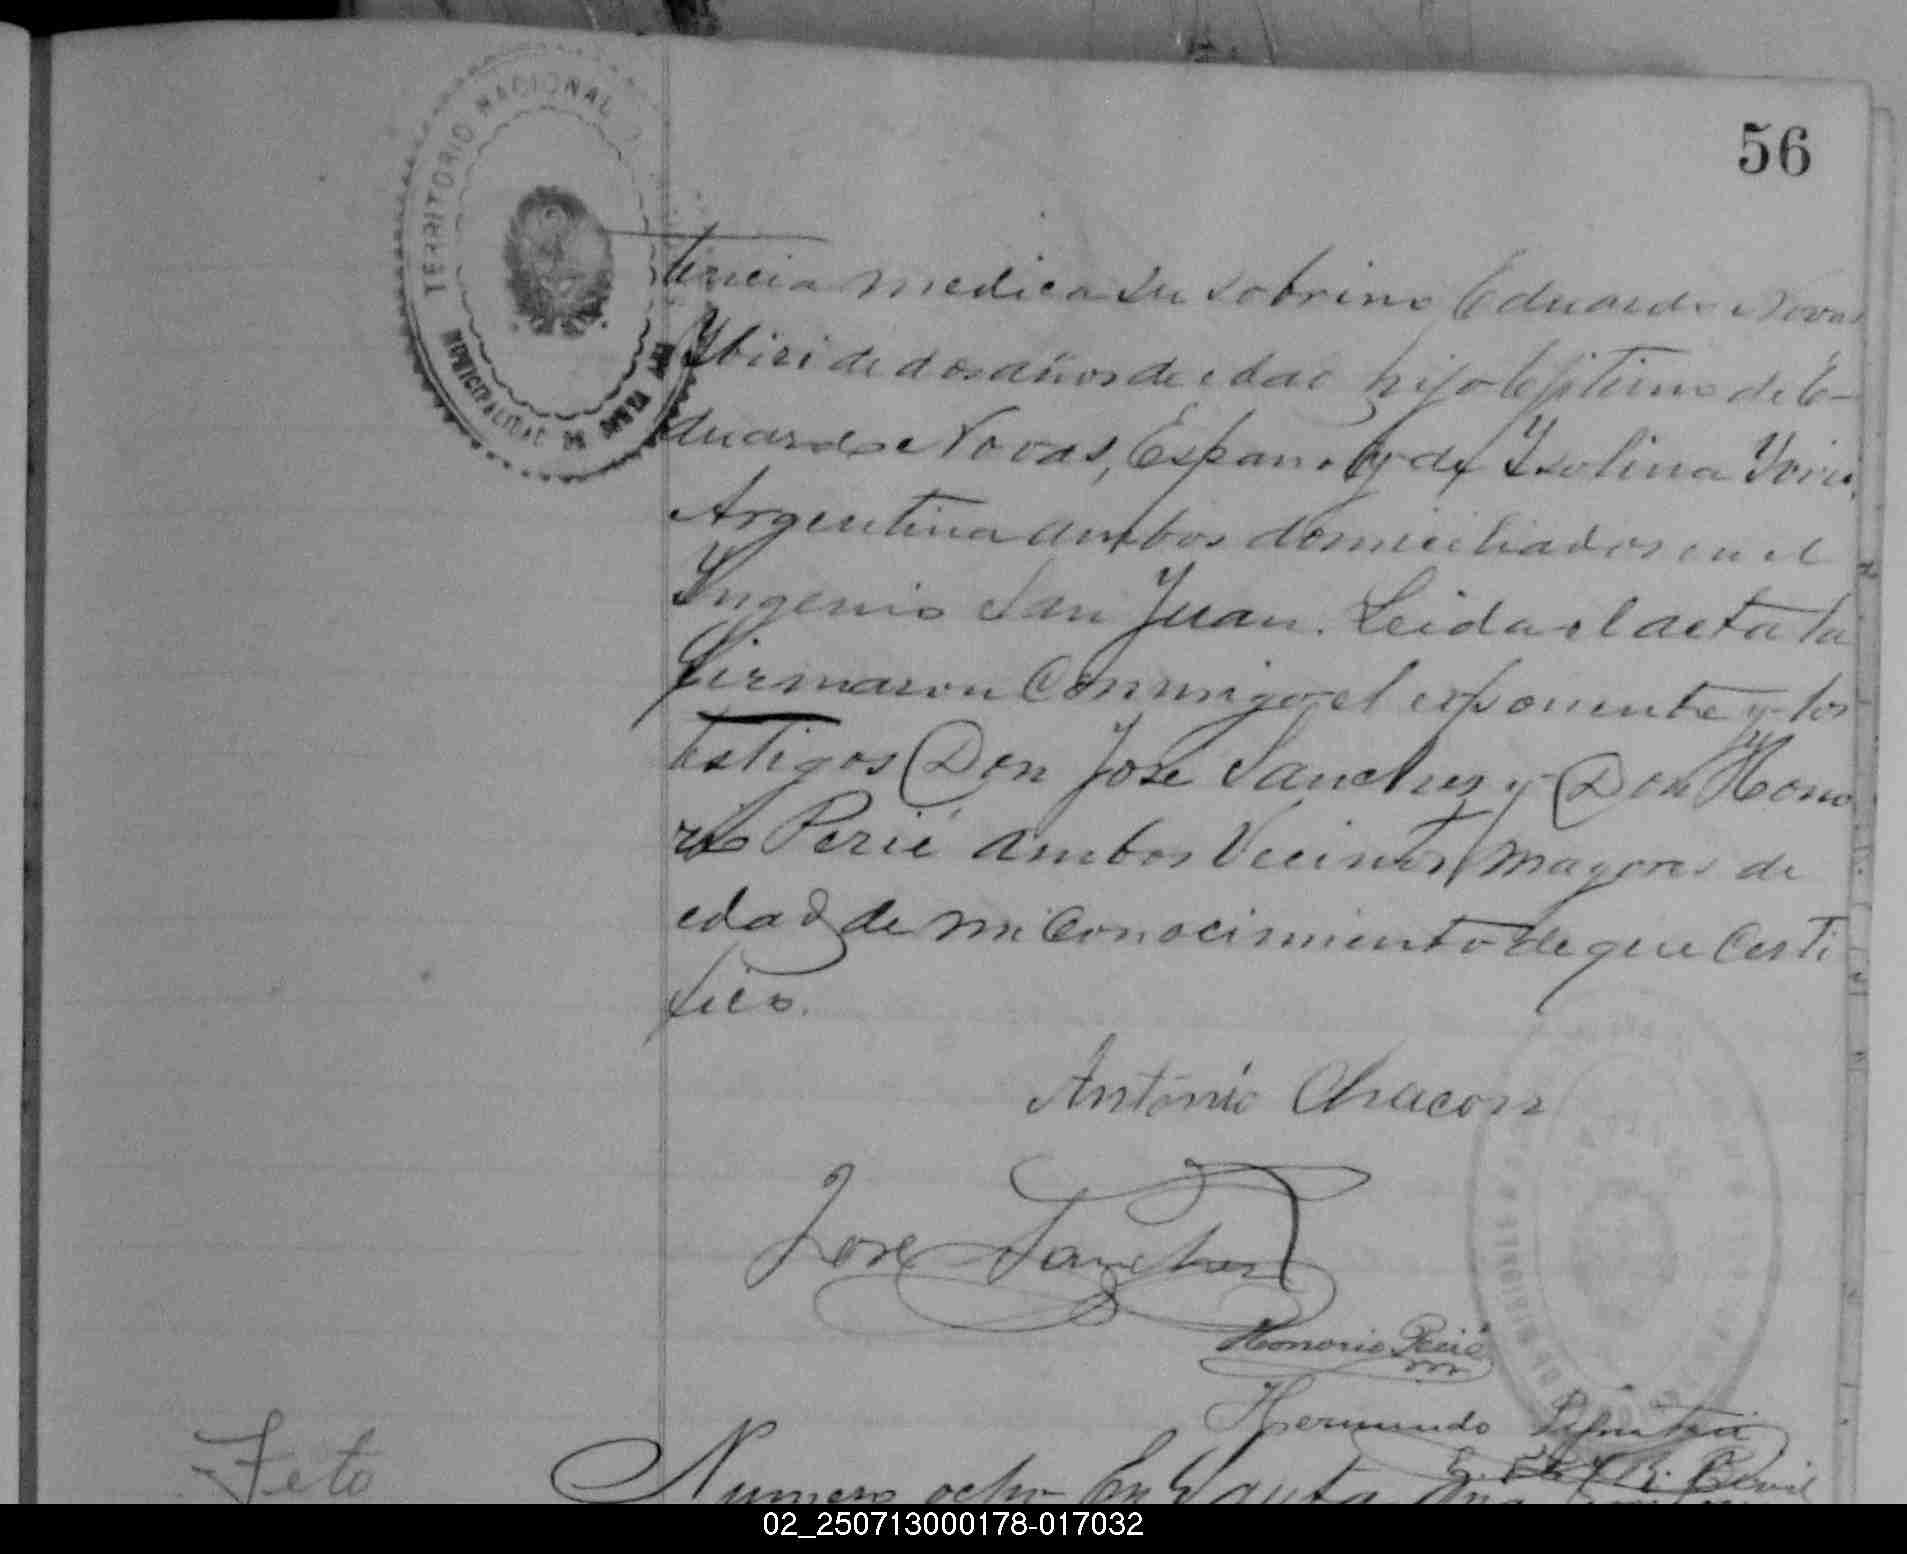 56
TERRITORIO NACIONAL D
MUNICIPALIDAD DE
tencia medica su sobrino Eduardo Novas
Ybiri de dos años de edad hijo lejitimo de E-
duardo Novas, Español y de Ysolina Yviri,
Argentina ambos domiciliados en el
Ingenio San Juan. Leida el acta la
firmaron conmigo el exponente y los
testigos Don José Sanchez y Don Hono
rio Perié ambos Vecinos mayores de
edad de mi conocimiento de que Certi
fico.
Antonio Chacon
Jose Sanchez
Honorio Perié
Feto
Numero ocho En Santa Ana
02_250713000178-017032